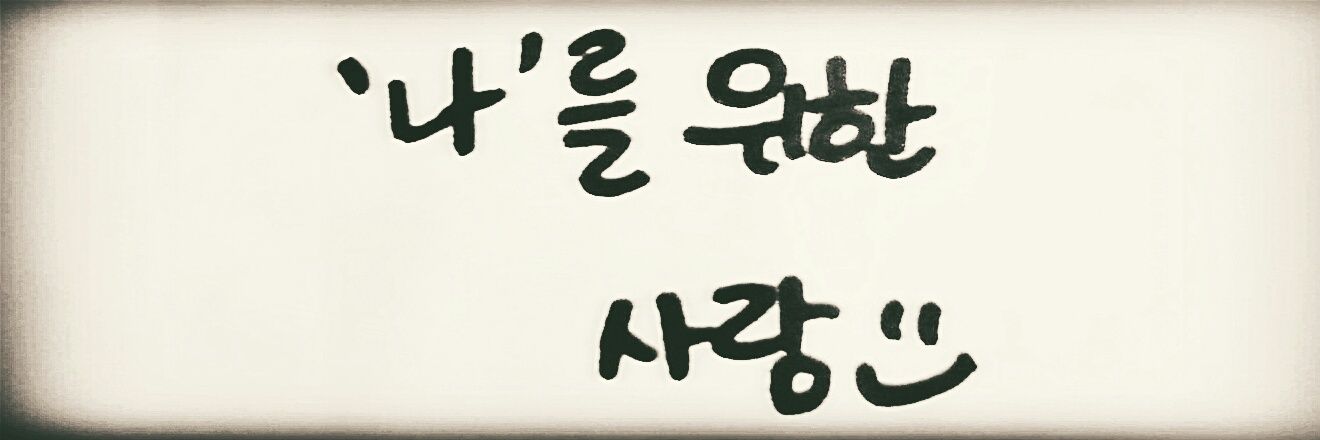 '나'를 위한
사랑